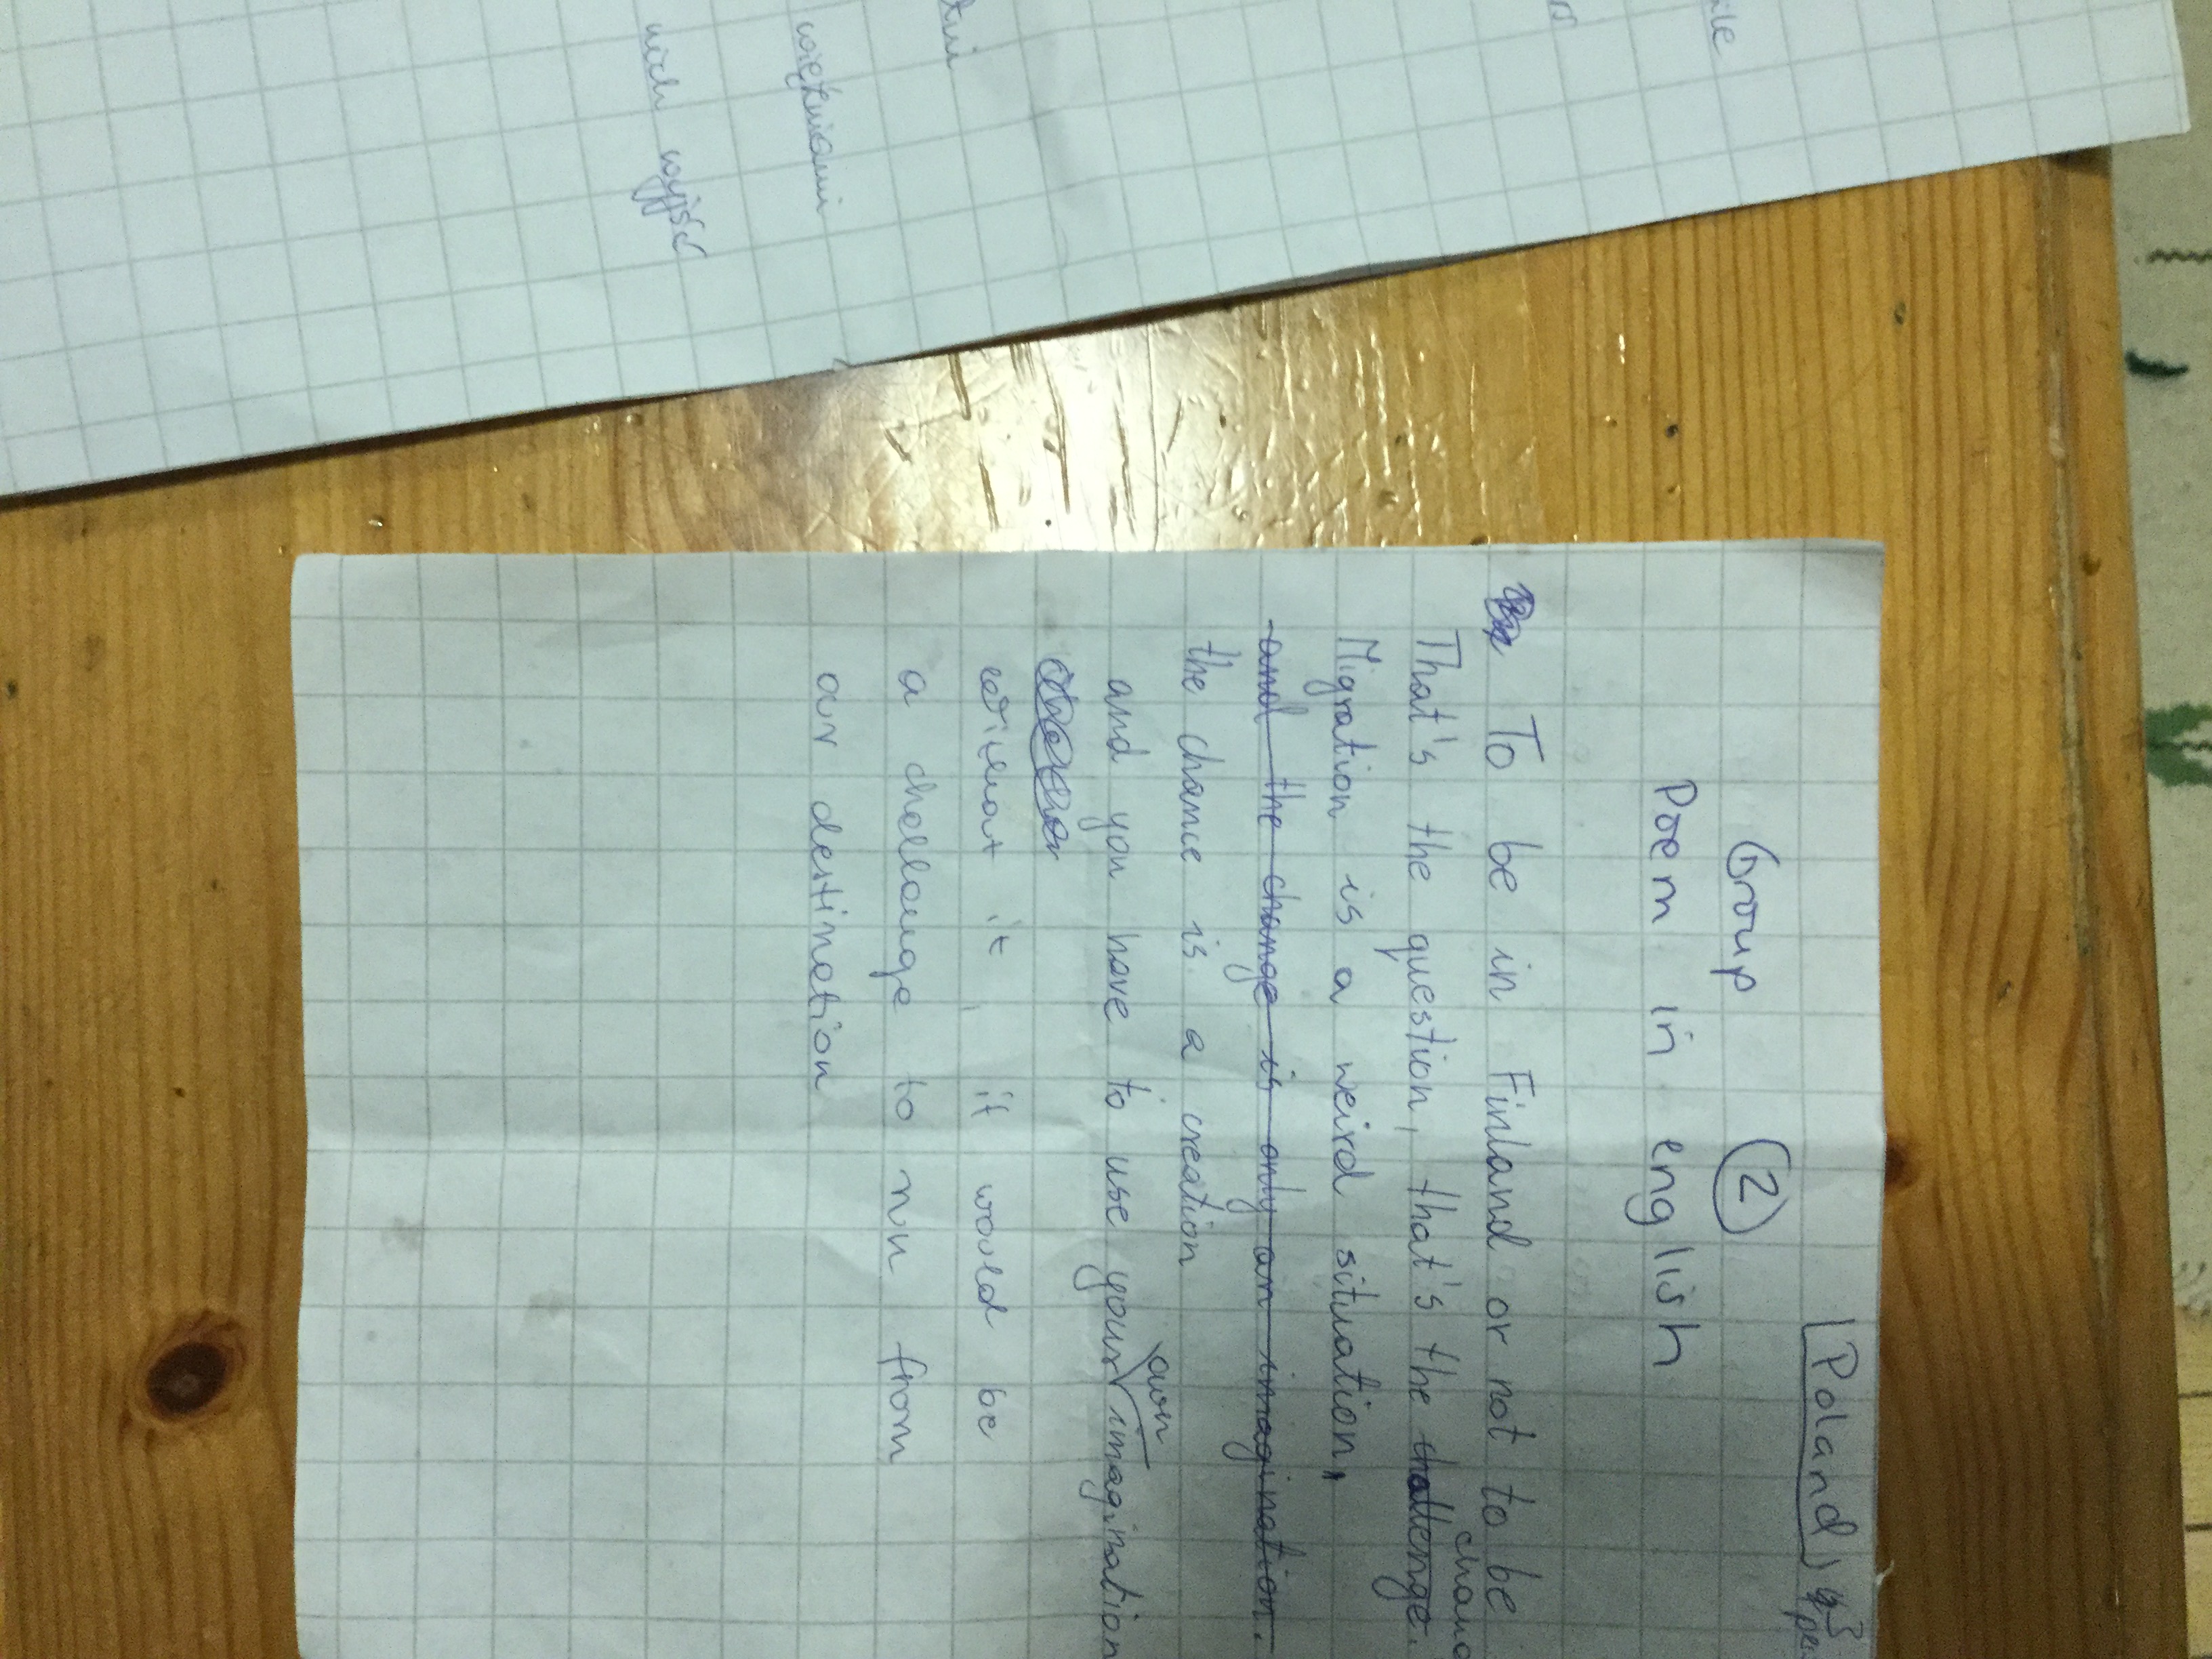 Poland
Group 2
Poem in english
To be in Finland or not to be
chang
That's the question, that's the challenge.
Migration is a weird situation,
and the change is only an imagination.
the chance is a creation
own
and you have to use your imagination
it, it would be
a challange to run from
our destination
więźniami
nich wyjść